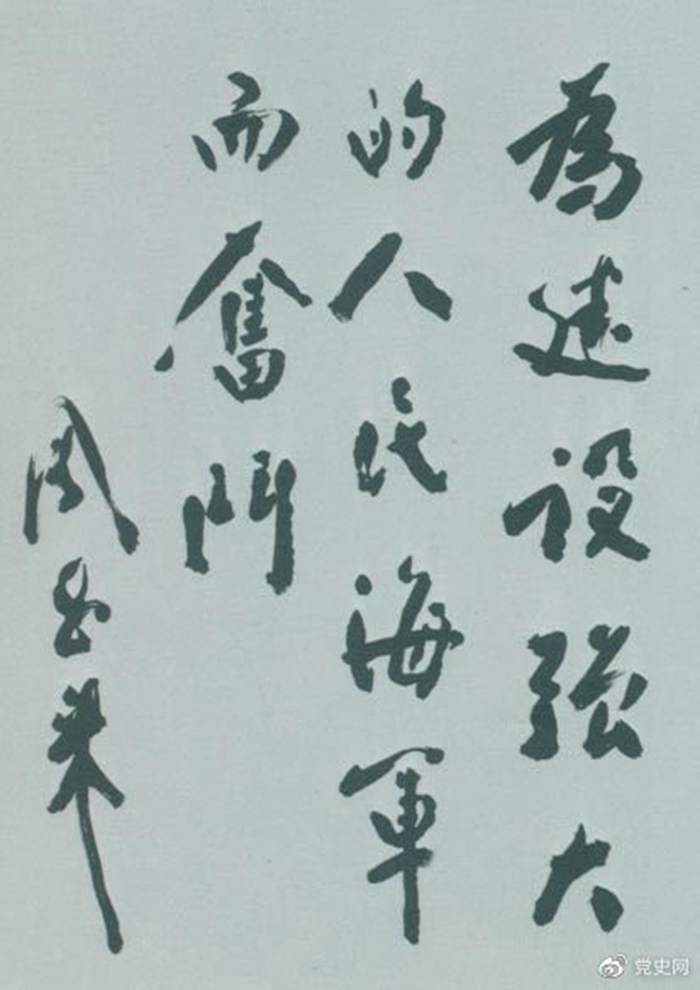 為建设强大
的人民海軍
而奮鬥
周恩来
党史网